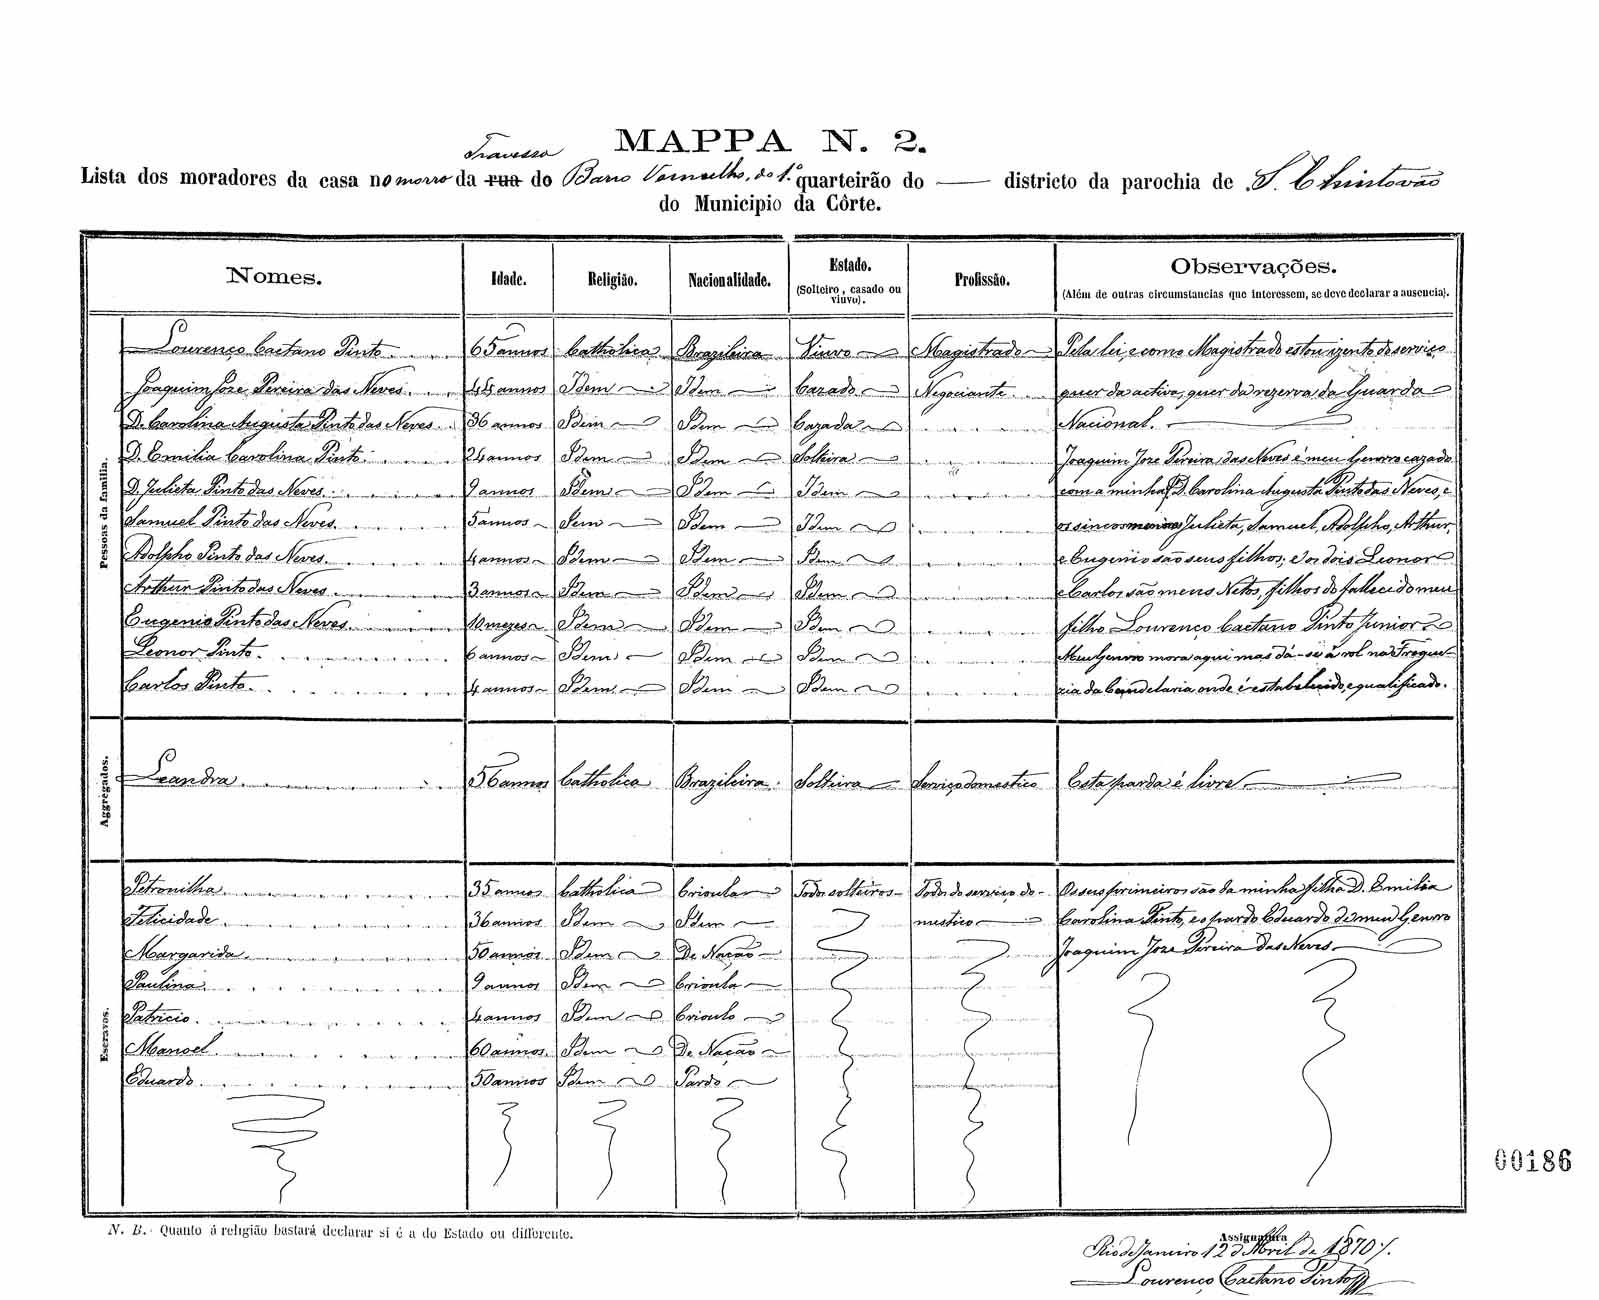 MAPPA N. 2.
Travessa
Lista dos moradores da casa no morro da rua do Barro Vermelho, do 1.º quarteirão do — districto da parochia de S. Christovão
do Municipio da Côrte.
Nomes. Idade. Religião. Nacionalidade. Estado. (Solteiro, casado ou viuvo). Profissão. Observações. (Além de outras circumstancias que interessem, se deve declarar a ausencia).
Pessoas da familia.
Lourenço Caetano Pinto 65 annos Catholica Brazileira Viuvo Magistrado Pela lei, e como Magistrado estou izento do serviço
Joaquim Joze Pereira das Neves 44 annos Idem Idem Cazado Negociante quer da activa, quer da rezerva da Guarda
D. Carolina Augusta Pinto das Neves 36 annos Idem Idem Cazada Nacional.
D. Emilia Carolina Pinto 24 annos Idem Idem Solteira Joaquim Joze Pereira das Neves é meu Genrro cazado
D. Julieta Pinto das Neves 9 annos Idem Idem Idem com a minha F. D. Carolina Augusta Pinto das Neves, e
Samuel Pinto das Neves 5 annos Idem Idem Idem os sinco meninos Julieta, Samuel, Adolpho, Arthur,
Adolpho Pinto das Neves 4 annos Idem Idem Idem e Eugenio são seus filhos; e os dois Leonor
Arthur Pinto das Neves 3 annos Idem Idem Idem e Carlos são meus Netos, filhos do fallecido meu
Eugenio Pinto das Neves 10 mezes Idem Idem Idem filho Lourenço Caetano Pinto Junior
Leonor Pinto 6 annos Idem Idem Idem Meu Genrro mora aqui mas dá-se á rol na Fregue-
Carlos Pinto 4 annos Idem Idem Idem zia da Candelaria onde é estabelecido, e qualificado.
Aggregados.
Leandra 56 annos Catholica Brazileira Solteira Serviço domestico Esta parda é livre
Escravos.
Petronilha 35 annos Catholica Crioula Todos solteiros Todos do serviço do- Os seus primeiros são da minha filha D. Emilia
Felicidade 36 annos Idem Idem mestico Carolina Pinto, e o pardo Eduardo do meu Genrro
Margarida 50 annos Idem De Nação Joaquim Joze Pereira das Neves
Paulina 9 annos Idem Crioula
Patricio 4 annos Idem Crioulo
Manoel 60 annos Idem De Nação
Eduardo 50 annos Idem Pardo
00186
N. B. Quanto á religião bastará declarar si é a do Estado ou differente.
Assignatura
Rio de Janeiro 12 d'Abril de 1870
Lourenço Caetano Pinto